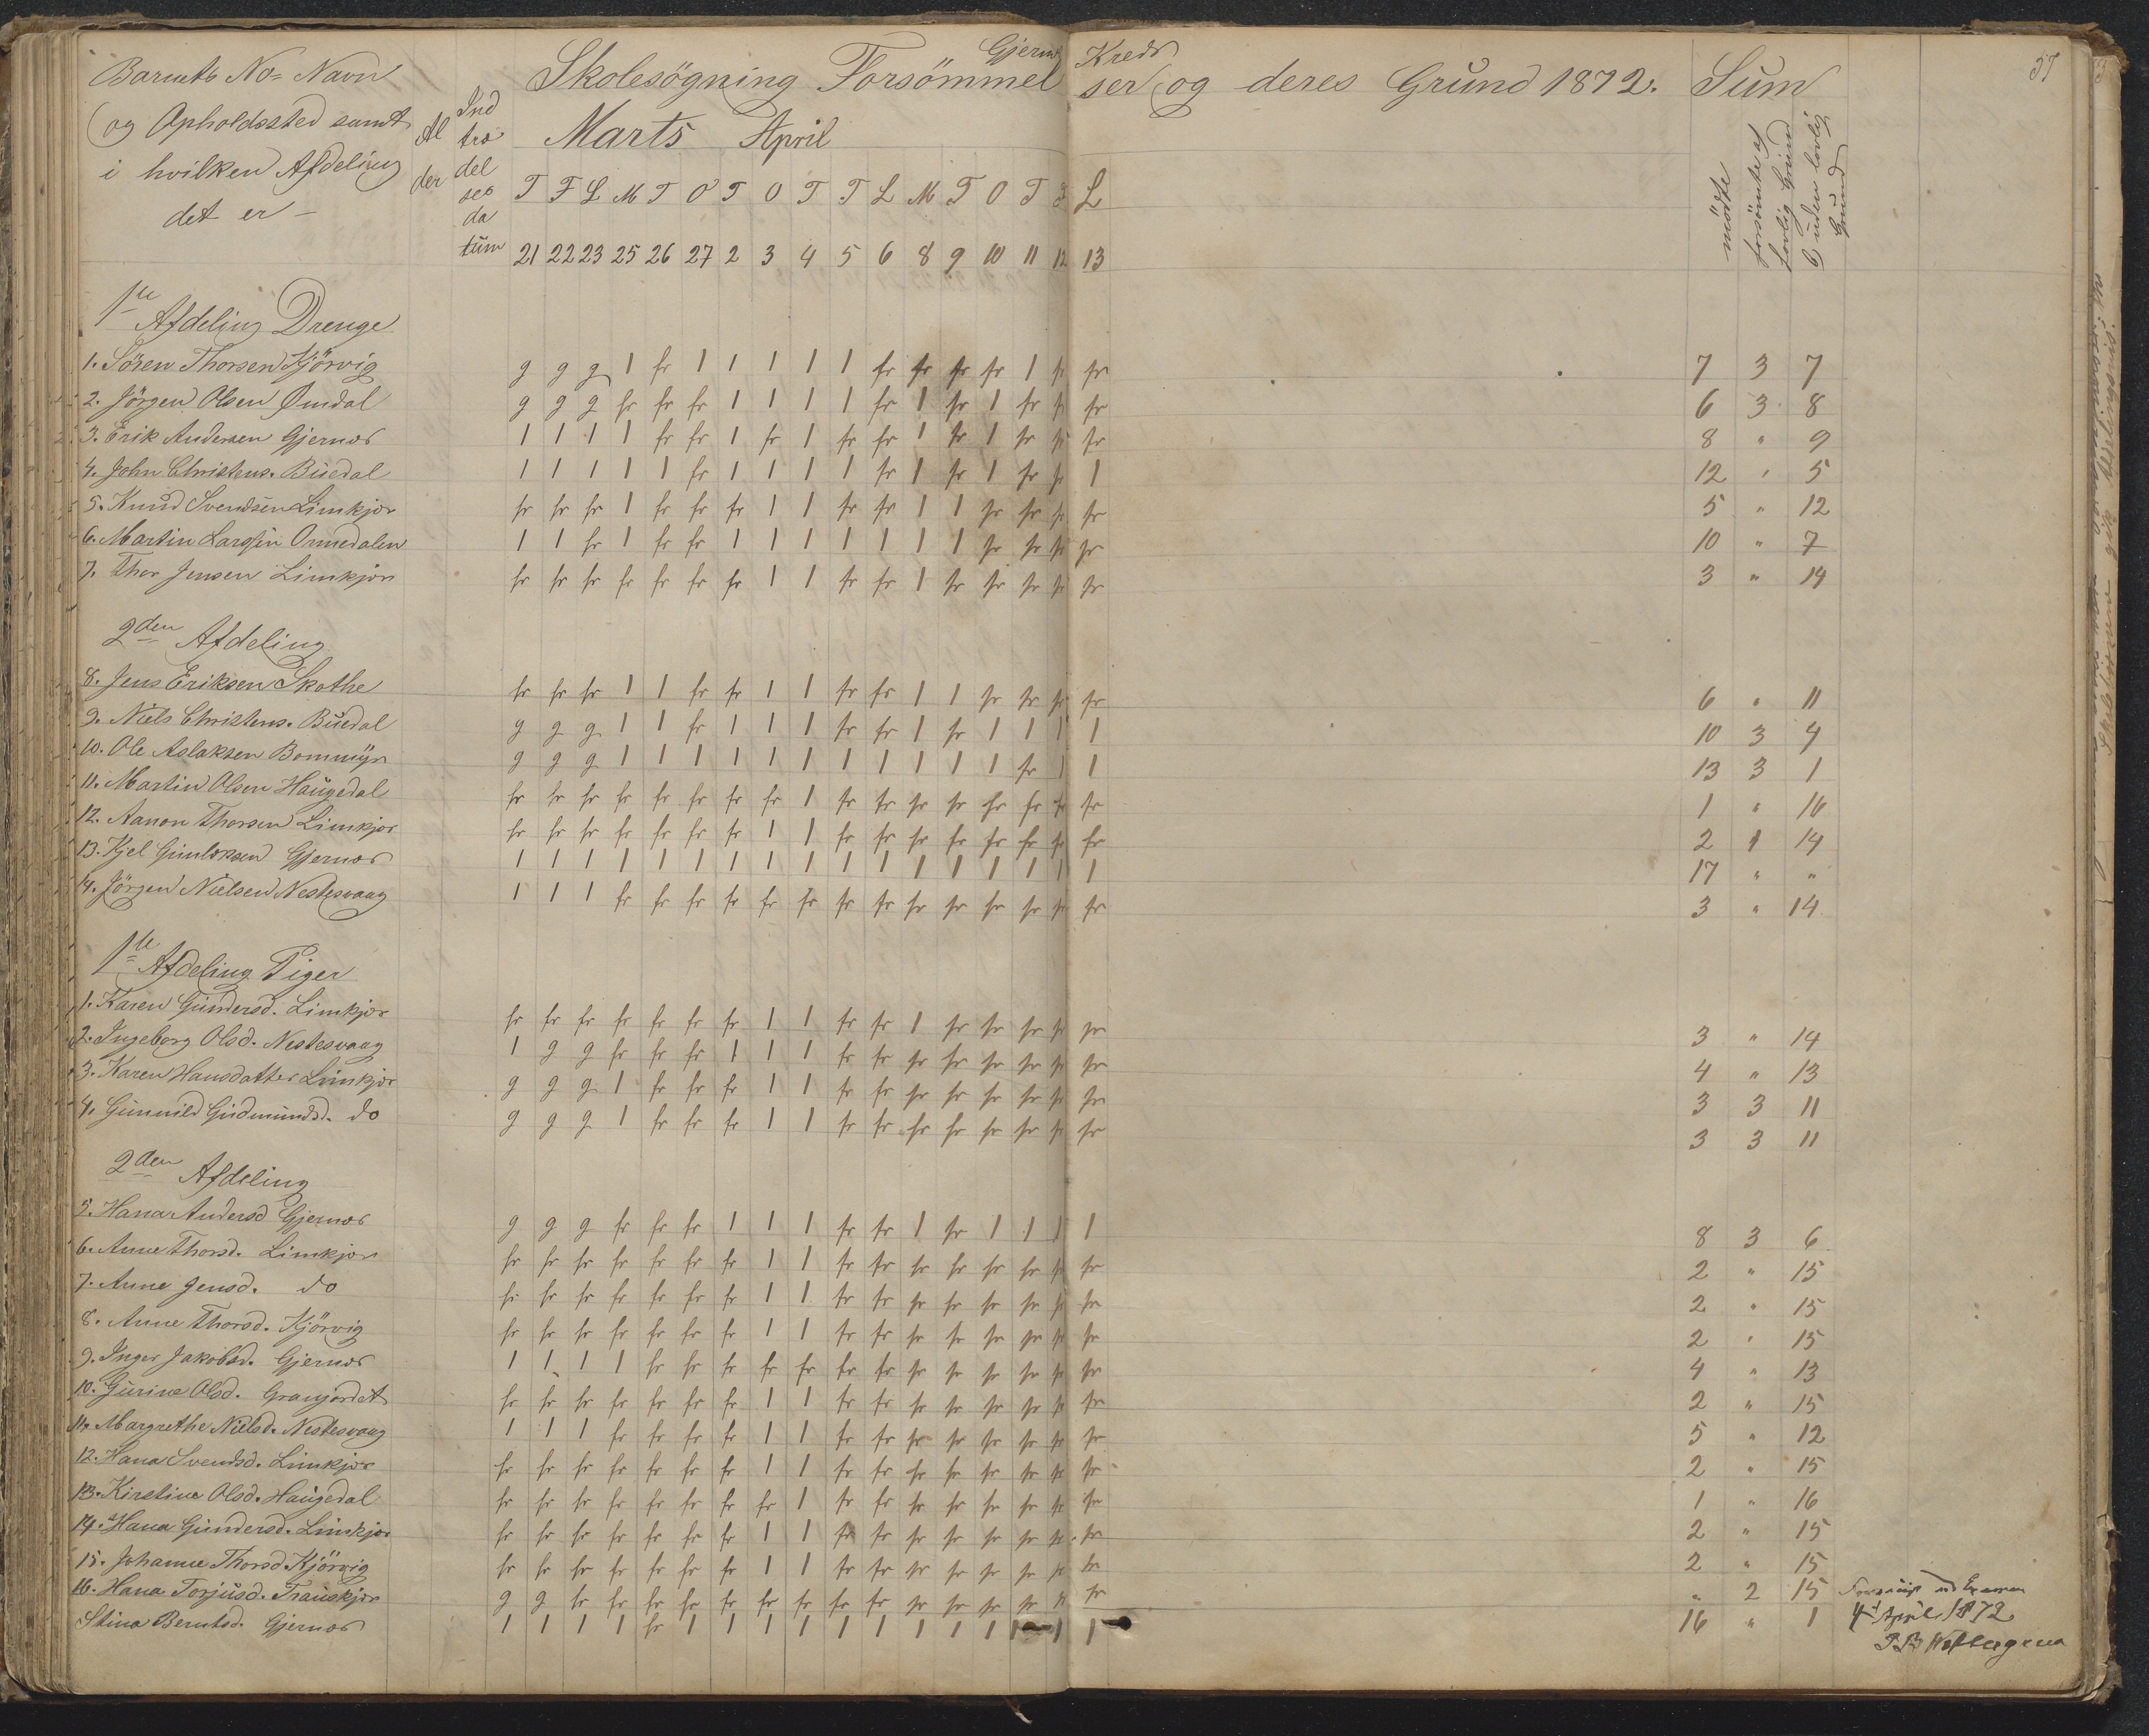 Gjernæs Kreds
Barnets No= Navn
og Opholdssted samt
i hvilken Afdeling
det er
Al der
Ind træ del ses da tum
Skolesögning Forsömmelser og deres Grund 1872. Sum
57
Marts April
mödte
forsömte af lovlig Grund
uden lovlig Grund
T F L M T O T O T T L M T O T F L
21 22 23 25 26 27 2 3 4 5 6 8 9 10 11 12 13
1ste Afdeling Drenge
1. Sören Thorsen Kjörvig g g g 1 fr 1 1 1 1 1 fr fr fr fr 1 fr fr 7 3 7
2. Jörgen Olsen Omdal g g g fr fr fr 1 1 1 1 fr 1 fr 1 fr fr fr 6 3 8
3. Erik Andersen Gjernæs 1 1 1 1 fr fr 1 fr 1 fr fr 1 fr 1 fr fr fr 8 " 9
4. John Christens. Buedal 1 1 1 1 1 fr 1 1 1 1 fr 1 fr 1 fr fr 1 12 " 5
5. Knud Svendsen Limkjær fr fr fr 1 fr fr fr 1 1 fr fr 1 1 fr fr fr fr 5 " 12
6. Martin Larssen Ormedalen 1 1 fr 1 fr fr 1 1 1 1 1 1 1 fr fr fr fr 10 " 7
7. Thor Jensen Limkjær fr fr fr fr fr fr fr 1 1 fr fr 1 fr fr fr fr fr 3 " 14
2den Afdeling
8. Jens Eriksen Skothe fr fr fr 1 1 fr fr 1 1 fr fr 1 1 fr fr fr fr 6 " 11
9. Niels Christens. Buedal g g g 1 1 fr 1 1 1 fr fr 1 fr 1 1 1 1 10 3 4
10. Ole Aslaksen Bommyr g g g 1 1 1 1 1 1 1 1 1 1 1 fr 1 1 13 3 1
11. Martin Olsen Haugedal fr fr fr fr fr fr fr fr 1 fr fr fr fr fr fr fr fr 1 " 16
12. Aanon Thorsen Limkjær fr fr fr fr fr fr fr 1 1 fr fr fr fr fr fr fr fr 2 1 14
13. Kjel Gunleksen Gjernæs 1 1 1 1 1 1 1 1 1 1 1 1 1 1 1 1 1 17 " "
14. Jörgen Nielsen Nestesvaag 1 1 1 fr fr fr fr fr fr fr fr fr fr fr fr fr fr 3 " 14
1ste Afdeling Piger
1. Karen Gundersd. Limkjær fr fr fr fr fr fr fr 1 1 fr fr 1 fr fr fr fr fr 3 " 14
2. Ingeborg Olsd. Nestesvaag 1 g g fr fr fr 1 1 1 fr fr fr fr fr fr fr fr 4 " 13
3. Karen Hansdatter Limkjær g g g 1 fr fr fr 1 1 fr fr fr fr fr fr fr fr 3 3 11
4. Gunnild Gudmundsd. do g g g 1 fr fr fr 1 1 fr fr fr fr fr fr fr fr 3 3 11
2den Afdeling
5. Hana Andersd Gjernæs g g g fr fr fr 1 1 1 fr fr 1 fr 1 1 1 1 8 3 6
6. Anne Thorsd. Limkjær fr fr fr fr fr fr fr 1 1 fr fr fr fr fr fr fr fr 2 " 15
7. Anne Jensd. do fr fr fr fr fr fr fr 1 1 fr fr fr fr fr fr fr fr 2 " 15
8. Anne Thorsd. Kjörvig fr fr fr fr fr fr fr 1 1 fr fr fr fr fr fr fr fr 2 " 15
9. Inger Jakobsd. Gjernæs 1 1 1 1 fr fr fr fr fr fr fr fr fr fr fr fr fr 4 " 13
10. Gurine Olsd. Granjordet fr fr fr fr fr fr fr 1 1 fr fr fr fr fr fr fr fr 2 " 15
11. Margrethe Nielsd. Nestesvaag 1 1 1 fr fr fr fr 1 1 fr fr fr fr fr fr fr fr 5 " 12
12. Hana Svendsd. Limkjær fr fr fr fr fr fr fr 1 1 fr fr fr fr fr fr fr fr 2 " 15
13. Kirstine Olsd. Haugedal fr fr fr fr fr fr fr fr 1 fr fr fr fr fr fr fr fr 1 " 16
14. Hana Gundersd. Limkjær fr fr fr fr fr fr fr 1 1 fr fr fr fr fr fr fr fr 2 " 15
15. Johanne Thorsd. Kjörvig fr fr fr fr fr fr fr 1 1 fr fr fr fr fr fr fr fr 2 " 15
16. Hana Torjusd. Trauskjær g g fr fr fr fr fr fr fr fr fr fr fr fr fr fr fr " 2 15
Stina Berntsd. Gjernæs 1 1 1 1 fr 1 1 1 1 1 1 1 1 1 1 1 1 16 " 1
ved Examen
4d April 1872.